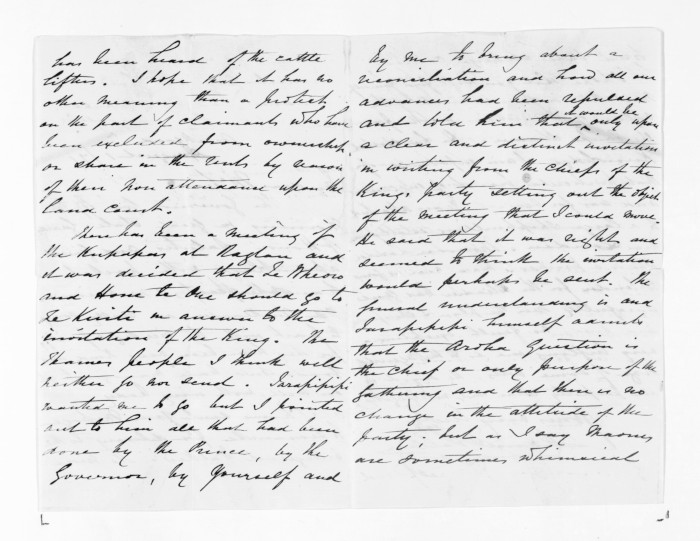 has been heard of the cattle
lifters. I hope that it has no
other meaning than a protest
on the part of claimants who have
been excluded from ownership
or share in the rents by reason
of their non attendance upon the
land court.
There has been a meeting of
the Kupapas at Raglan and
it was decided that Te Wheoro
and Hone te One should go to
Te Kuiti in answer to the
invitation of the King. The
Thames people I think will
neither go nor send. Tarapipipi
wanted me to go but I pointed
out to him all that had been
done by the Prince, by the
Governor, by Yourself and
by me to bring about a
reconciliation and how all our
advances had been repulsed
and told him that it would be only upon
a clear and distinct invitation
in writing from the chiefs of the
Kings party setting out the object
of the meeting that I could move.
He said that it was right and
seemed to think the invitation
would perhaps be sent. The
general understanding is and
Tarapipipi himself admits
that the Aroha Question is
the chief or only purpose of the
gathering and that there is no
change in the attitude of the
party; but as I say Maoris
are sometimes whimsical